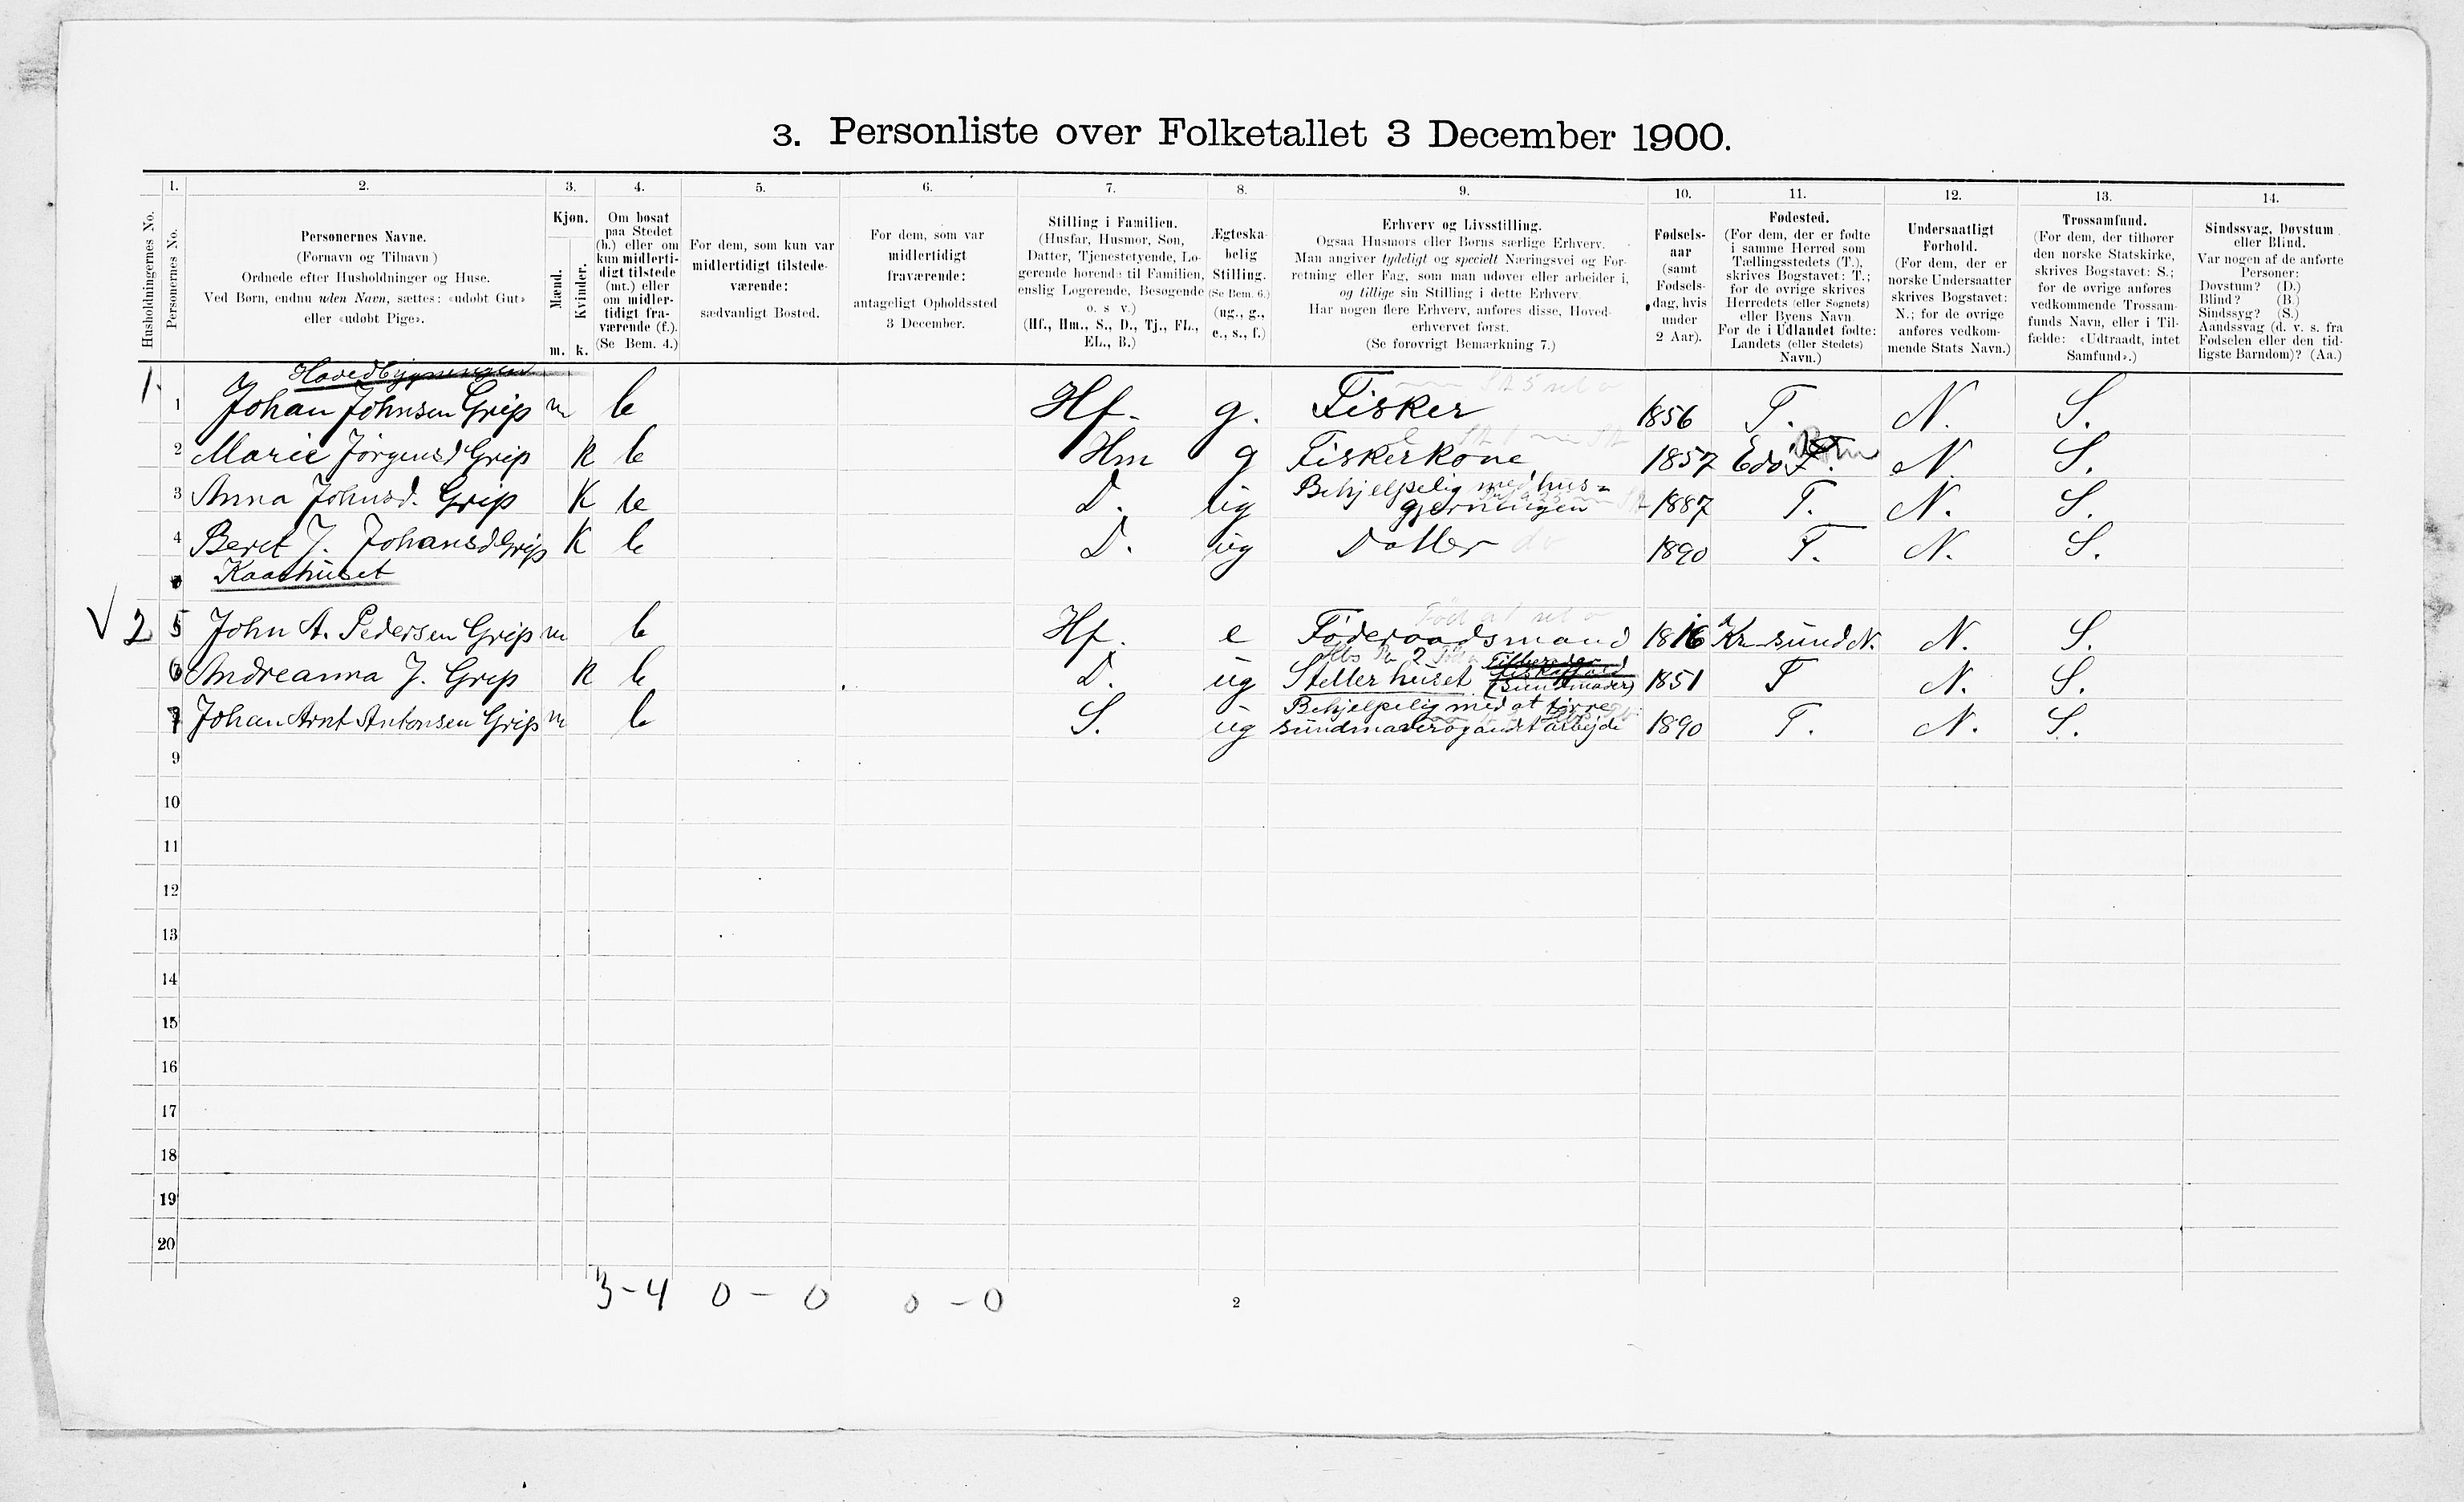 3. Personliste over Folketallet 3 December 1900.
1. 2. 3. 4. 5. 6. 7. 8. 9. 10. 11. 12. 13. 14.
Husholdningernes No.
Personernes No.
Personernes Navne.
(Fornavn og Tilnavn)
Ordnede efter Husholdninger og Huse.
Ved Børn, endnu uden Navn, sættes: «udøbt Gut»
eller «udøbt Pige».
Kjøn.
Mænd.
Kvinder.
m. k.
Om bosat
paa Stedet
(b.) eller om
kun midlerti-
digt tilstede
(mt.) eller
om midler-
tidigt fra-
værende (f.).
(Se Bem. 4.)
For dem, som kun var
midlertidigt tilstede-
værende:
sædvanligt Bosted.
For dem, som var
midlertidigt
fraværende:
antageligt Opholdssted
3 December.
Stilling i Familien.
(Husfar, Husmor, Søn,
Datter, Tjenestetyende, Lo-
gerende hørende til Familien,
enslig Logerende, Besøgende
o. s v.)
(Hf., Hm., S., D., Tj., FL.,
EL., B.)
Ægteska-
belig
Stilling.
(Se Bem. 6.)
(ug., g.,
e., s., f.)
Erhverv og Livsstilling.
Ogsaa Husmors eller Børns særlige Erhverv.
Man angiver tydeligt og specielt Næringsvei og For-
retning eller Fag, som man udøver eller arbeider i,
og tillige sin Stilling i dette Erhverv.
Har nogen flere Erhverv, anføres disse, Hoved-
erhvervet først.
(Se forøvrigt Bemærkning 7.)
Fødsels-
aar
(samt
Fødsels-
dag, hvis
under
2 Aar).
Fødested.
(For dem, der er fødte
i samme Herred som
Tællingsstedets (T.),
skrives Bogstavet: T.;
for de øvrige skrives
Herredets (eller Sognets)
eller Byens Navn.
For de i Udlandet fødte:
Landets (eller Stedets)
Navn.)
Undersaatligt
Forhold.
(For dem, der er
norske Undersaatter
skrives Bogstavet:
N.; for de øvrige
anføres vedkom-
mende Stats Navn.)
Trossamfund.
(For dem, der tilhører
den norske Statskirke,
skrives Bogstavet: S.;
for de øvrige anføres
vedkommende Trossam-
funds Navn, eller i Til-
fælde: «Udtraadt, intet
Samfund».)
Sindssvag, Døvstum
eller Blind.
Var nogen af de anførte
Personer:
Døvstum? (D.)
Blind? (B.)
Sindssyg? (S.)
Aandssvag (d. v. s. fra
Fødselen eller den tid-
ligste Barndom)? (Aa.)
Hovedbygningen
1. 1 Johan Johnsen Grip m b Hf. g. Fisker 1856 T. N. S.
2 Marie Jørgensd Grip K b Hm g Fiskerkone 1857 Edø N S.
3 Anna Johnsd. Grip K b D. ug Behjelpelig med hus-
gjerningen 1887 T. N. S.
4 Beret J. Johansd Grip K b D. ug Datter do 1890 T. N. S.
Kaarhuset
√ 2 5 John A. Pedersen Grip m b Hf. e Føderaadsmand 1816 Kr-sund N. N. S.
6 Andreanna J. Grip K b D. ug Steller huset (sundmaver) 1851 T N. S.
7 Johan Arnt Antonsen Grip m b S. ug Behjelpelig med at tørre
sundmaver og andet arbejde 1890 T. N. S.
9
10
11
12
13
14
15
16
17
18
19
20
3-4 0-0 0-0
2